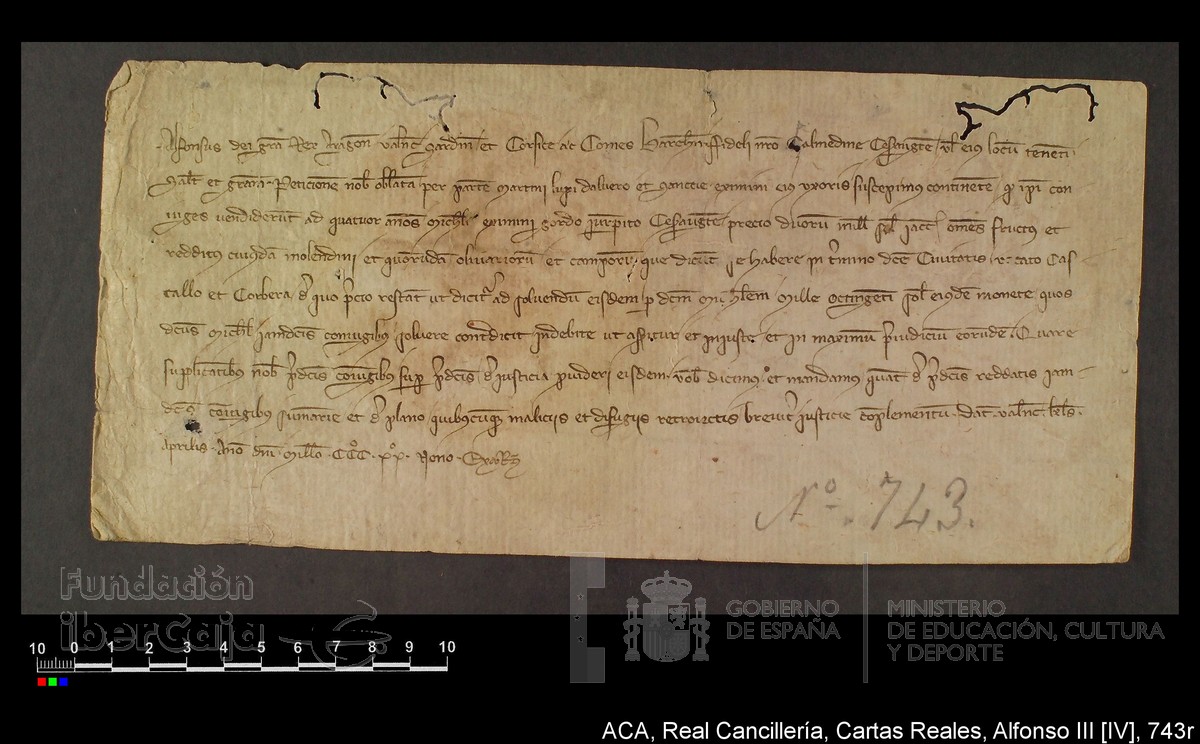 Alfonsus dei gra Rex Aragon Valnc Sardin et Corsice ac Comes Barchn fideli nro Calmedine Cesarauguste vl eius locu tenenti
Salt et gram Peticione nob oblata per parte Martini lupi daluero et Sanccie exmini eius uxoris suscepimus continete qd ipi con
iuges vendiderut ad quatuor annos Michli exmini Gordo Jurpito Cesarauguste precio duoru mill sol iacc omes fructus et
redditus cuiusda molendini et quoruda olivariorum et camporu que dicut se habere in tmino dce Civitatis vocato Cas
tallo et Corbera de quo pcio restat ut dicitr ad solvendu eisdem p dcm Michlem Mille octingenti sol eiusde monete quos
dcus Michl iamdcis coniugibus solvere contdicit indebite ut assitur et iniuste et in maximum pieudiciu eorunde Quare
supplicatibus nob pdcis coniugibus sup pdcis de iusticia pvideri eisdem vob dicimus et mandamus quat de pdcis reddatis iam
dcis coniugibus sumarie et de plano quibuscuqz maliciis et difugiis retroiectis brevitr iusticie coplementum Dat Valnc kls
aprilis Ano dni Millo CCC xx Nono
No. 743.
Fundación
iberCaja
GOBIERNO
DE ESPAÑA
MINISTERIO
DE EDUCACIÓN, CULTURA
Y DEPORTE
10 0 1 2 3 4 5 6 7 8 9 10
ACA, Real Cancillería, Cartas Reales, Alfonso III [IV], 743r